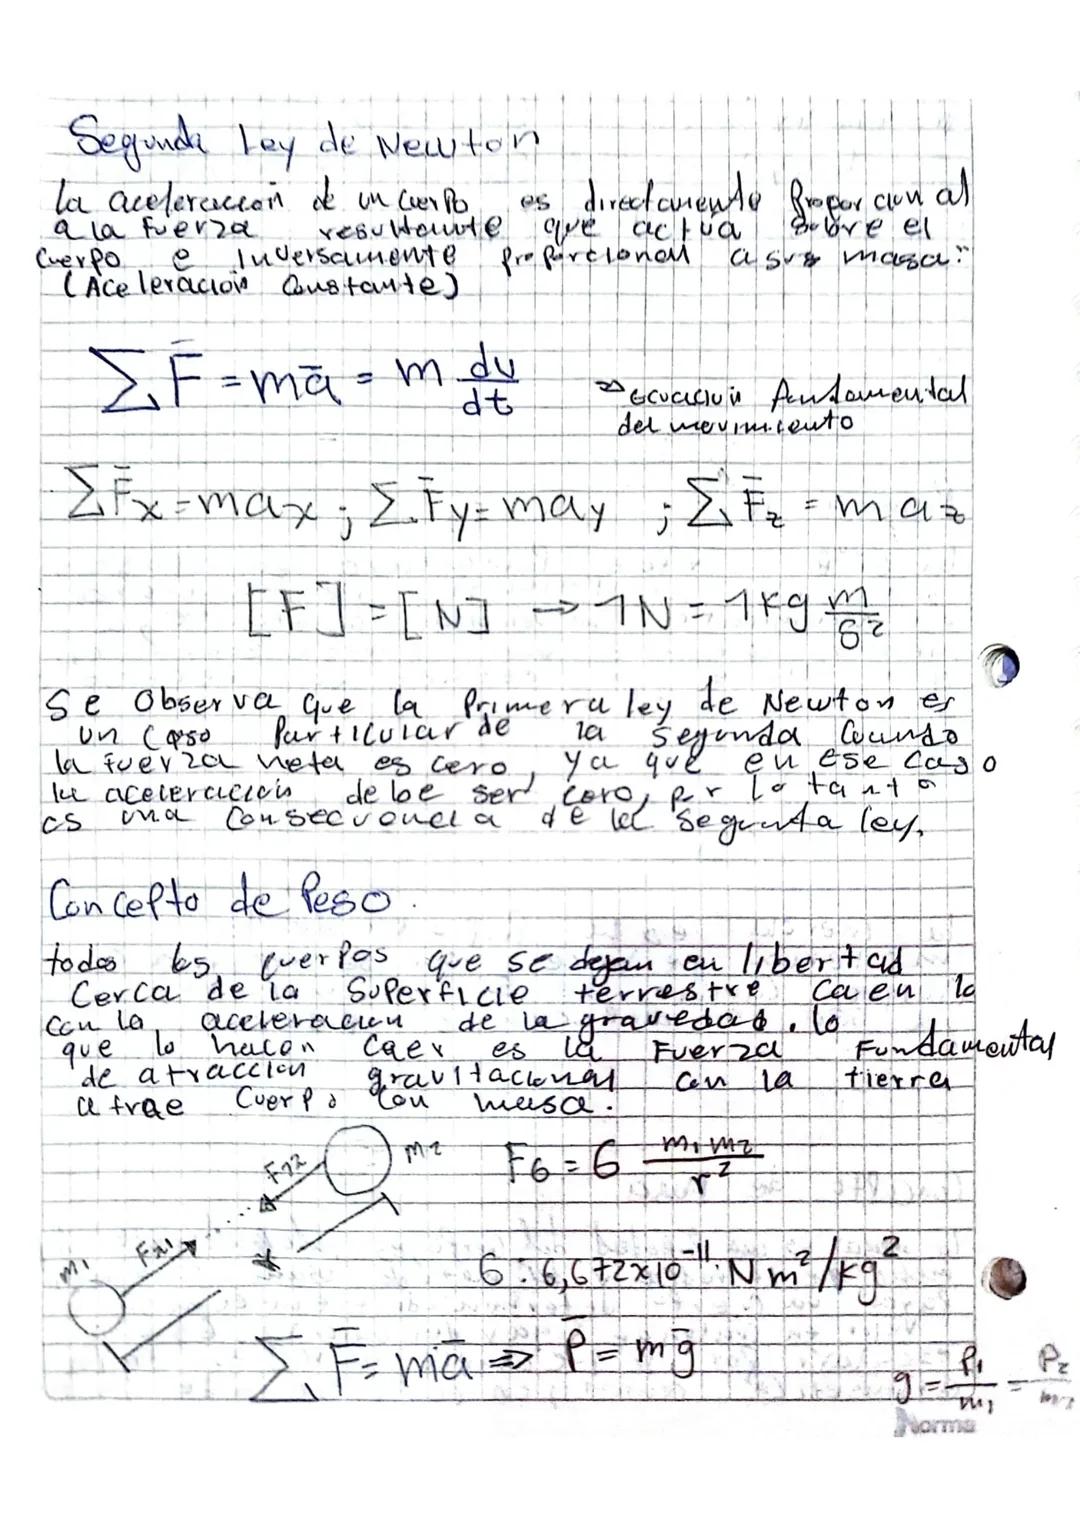 Segunda Ley de Newton
La aceleracion de un cuerpo es directamente proporcional
a la fuerza resultante que actua sobre el
cuerpo e inversamente proporcional a sus masa:"
(Aceleracion Constante)
∑F̄ = mā = m dv/dt
⇒ ecuacion fundamental
del movimiento
∑F̄x = max ; ∑F̄y = may ; ∑F̄z = maz
[F] = [N] → 1N = 1kg m/s²
Se Observa que la Primera ley de Newton es
un caso Particular de la segunda Cuando
la fuerza neta es cero, ya que en ese caso
la aceleracion debe ser cero, por lo tanto
es una Consecuencia de la segunda ley.
Concepto de Peso.
todos los cuerpos que se dejan en libertad
Cerca de la Superficie terrestre caen
con la aceleracion de la gravedad. lo
que lo hacen caer es la Fuerza Fundamental
de atraccion gravitacional con la tierra
atrae Cuerpo con masa.
F12 m2
FG = G m1 m2 / r²
m1 F21
G: 6,672x10⁻¹¹ N m²/kg²
∑F̄ = mā ⇒ P̄ = mḡ
g = P1/m1 = P2/m2
Norma